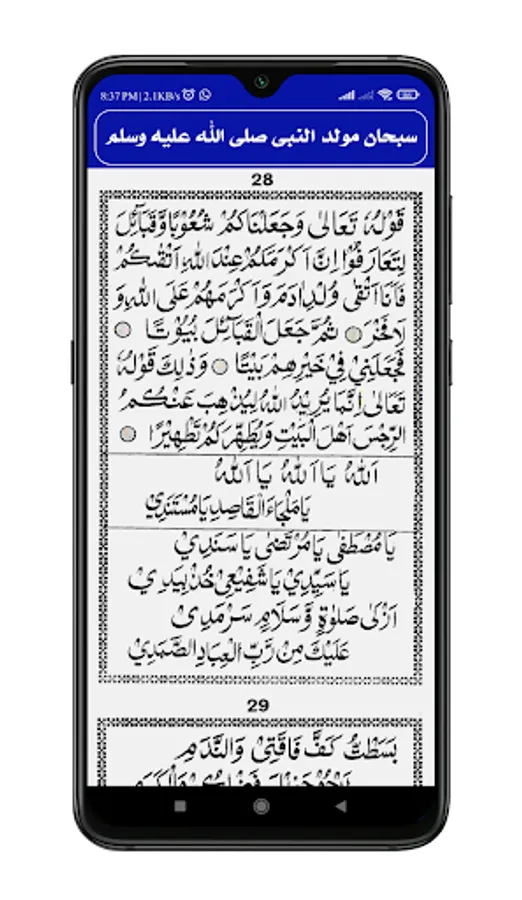 8:37 PM | 2.1KB/s
سبحان مولد النبى صلى الله عليه وسلم
28
قَوْلُهٗ تَعَالٰى وَجَعَلْنَاكُمْ شُعُوْبًا وَّقَبَآئِلَ
لِتَعَارَفُوْا اِنَّ اَكْرَمَكُمْ عِنْدَ اللهِ اَتْقٰىكُمْ
فَاَنَا اَتْقٰى وُلْدِ اٰدَمَ وَاَكْرَمُهُمْ عَلَى اللهِ وَ
لَا فَخْرَ ○ ثُمَّ جَعَلَ الْقَبَآئِلَ بُيُوْتًا ○
فَجَعَلَنِيْ فِيْ خَيْرِهِمْ بَيْتًا ○ وَذٰلِكَ قَوْلُهٗ
تَعَالٰى اِنَّمَا يُرِيْدُ اللهُ لِيُذْهِبَ عَنْكُمُ
الرِّجْسَ اَهْلَ الْبَيْتِ وَيُطَهِّرَكُمْ تَطْهِيْرًا ○
اَللهُ يَا اَللهُ يَا اَللهُ
يَا مَلْجَاءَ الْقَاصِدِ يَا مُسْتَنَدِيْ
يَا مُصْطَفٰى يَا مُرْتَضٰى يَا سَنَدِيْ
يَا سَيِّدِيْ يَا شَفِيْعِيْ خُذْ بِيَدِيْ
اَزْكٰى صَلٰوةٍ وَّسَلَامٍ سَرْمَدِيْ
عَلَيْكَ مِنْ رَّبِّ الْعِبَادِ الصَّمَدِيْ
29
بَسَطْتُ كَفَّ فَاقَتِيْ وَالنَّدَمِ